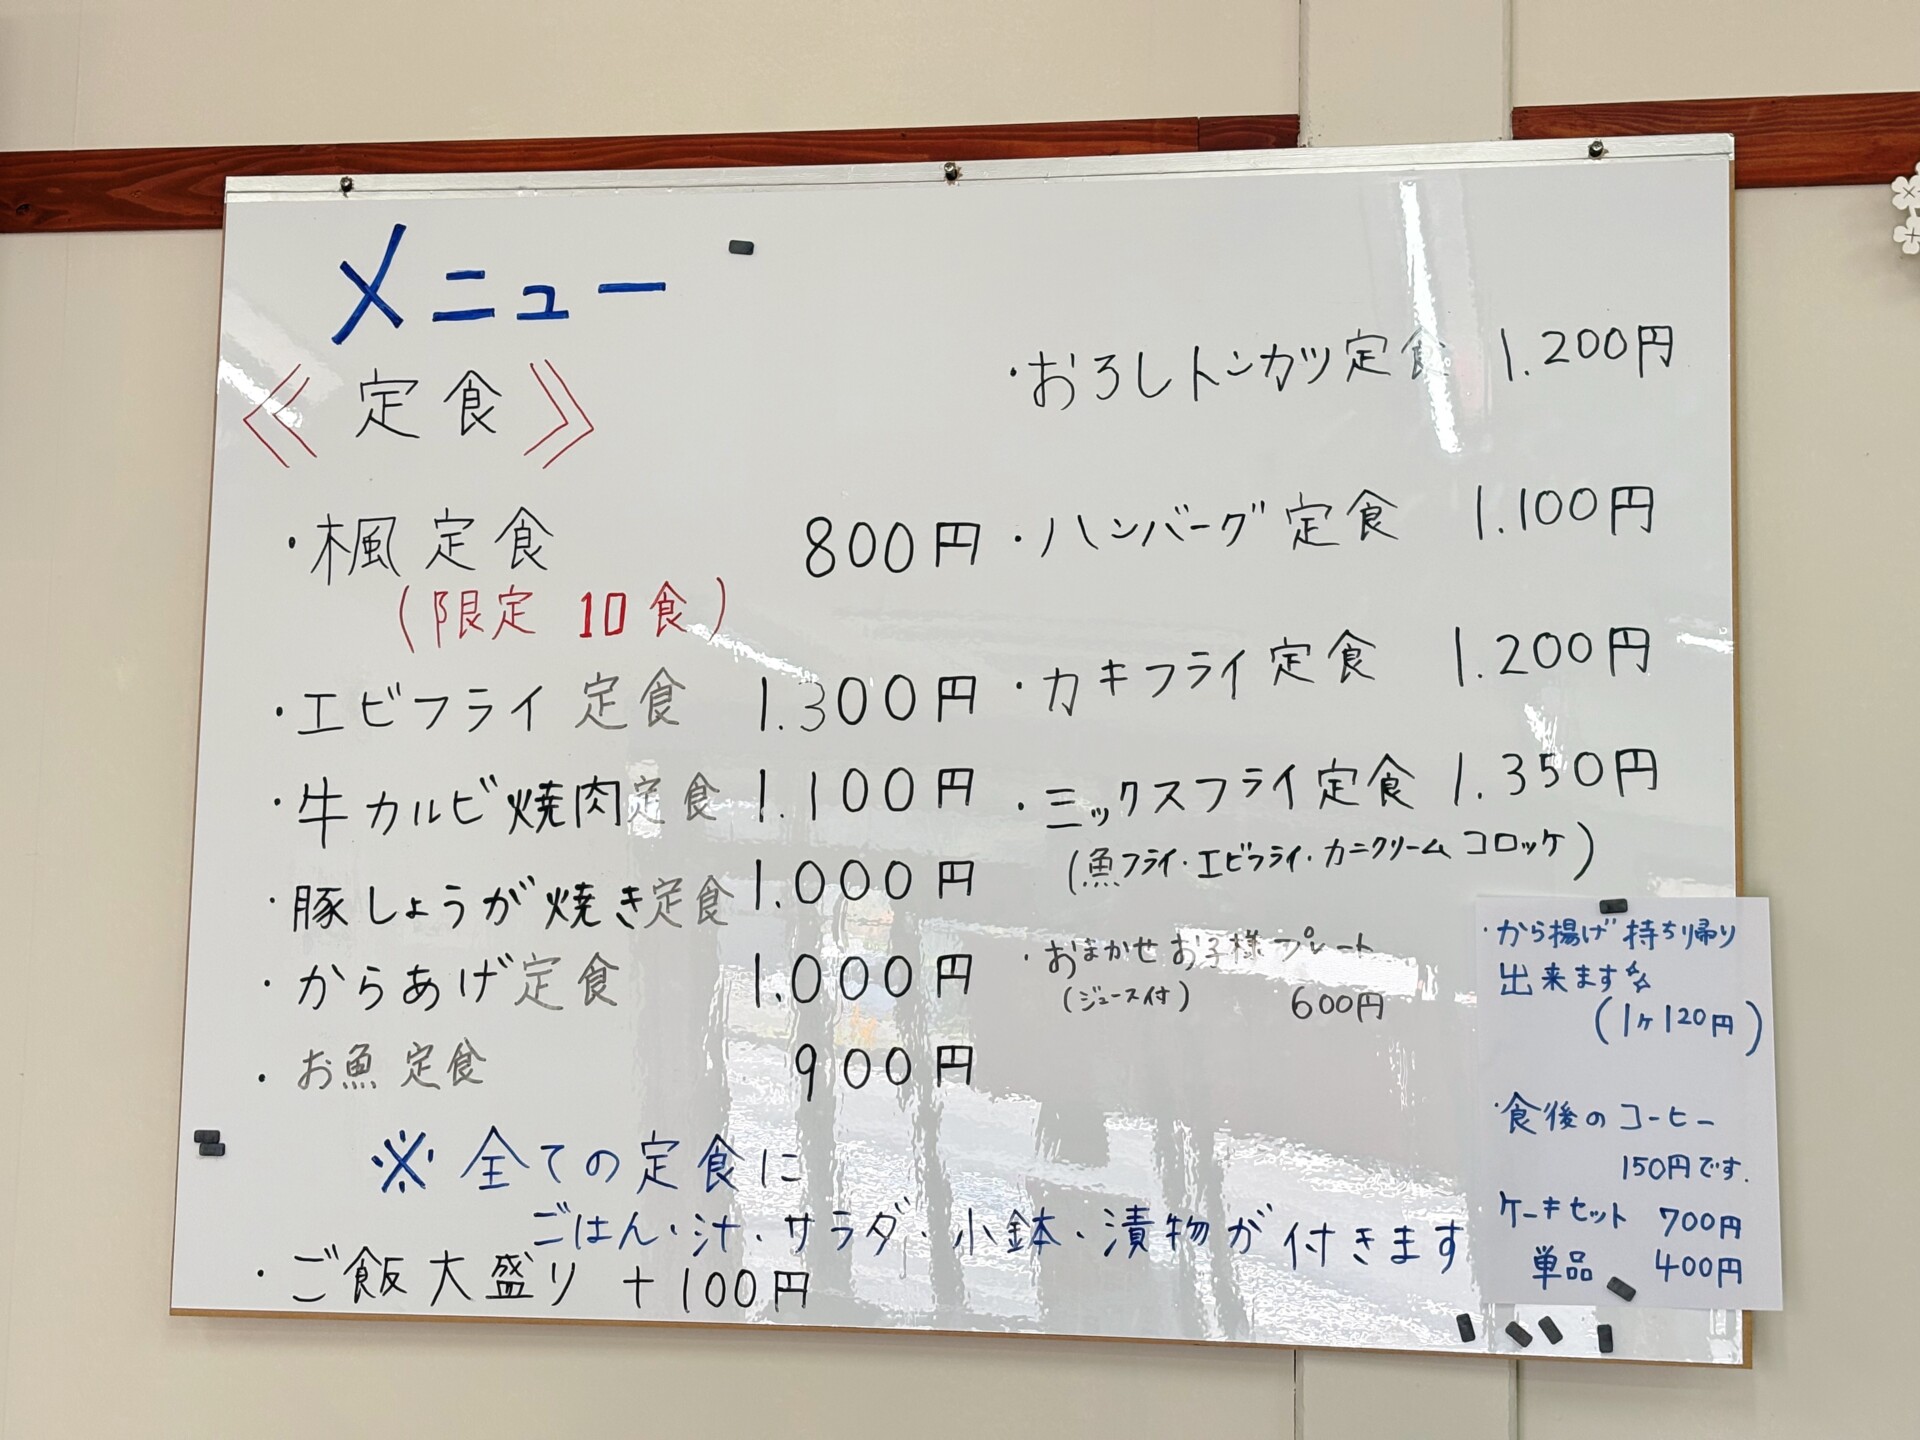 メニュー
《定食》
・楓定食 800円
(限定 10食)
・エビフライ定食 1.300円
・牛カルビ焼肉定食 1.100円
・豚しょうが焼き定食 1.000円
・からあげ定食 1.000円
・お魚定食 900円
※全ての定食に
ごはん・汁・サラダ・小鉢・漬物が付きます
・ご飯大盛り +100円
・おろしトンカツ定食 1.200円
・ハンバーグ定食 1.100円
・カキフライ定食 1.200円
・ミックスフライ定食 1.350円
(魚フライ・エビフライ・カニクリームコロッケ)
・おまかせお子様プレート
(ジュース付) 600円
・から揚げ持ち帰り
出来ます☆
(1ヶ120円)
・食後のコーヒー
150円です.
ケーキセット 700円
単品 400円